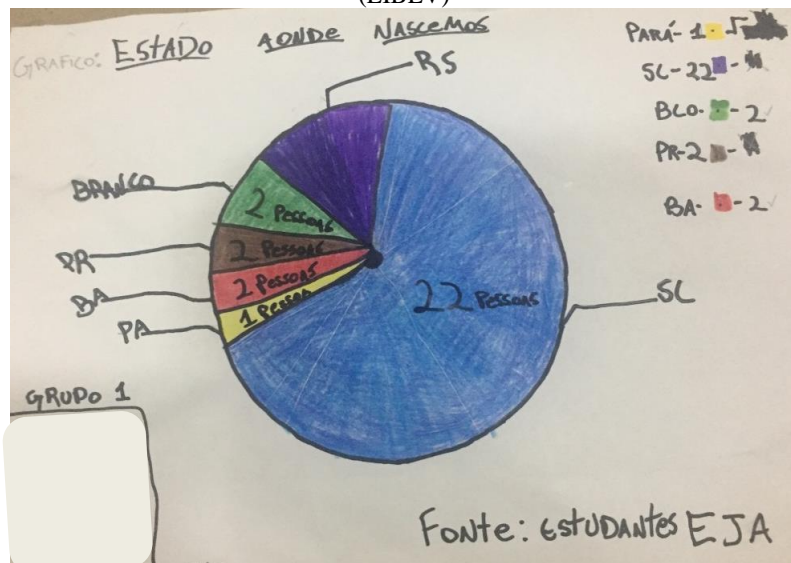 (LIDEV)
GRAFICO: ESTADO AONDE NASCEMOS
RS
PARÁ- 1
SC-22 -
BCO- - 2
PR-2 -
BA- - 2
BRANCO
2 Pessoas
PR
2 Pessoas
BA
2 Pessoas
PA
1 Pessoa
22 Pessoas
SC
GRUPO 1
FONTE: ESTUDANTES EJA